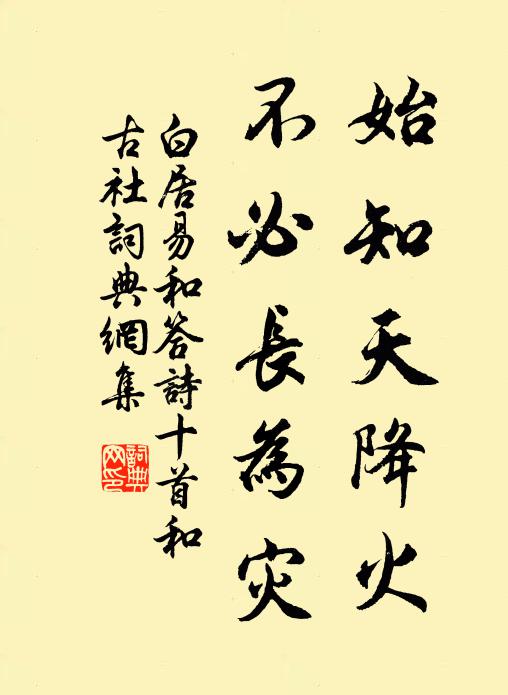 始知天降火
不必長為灾
白居易和答詩十首和
古社詞典網集
詞典
网印